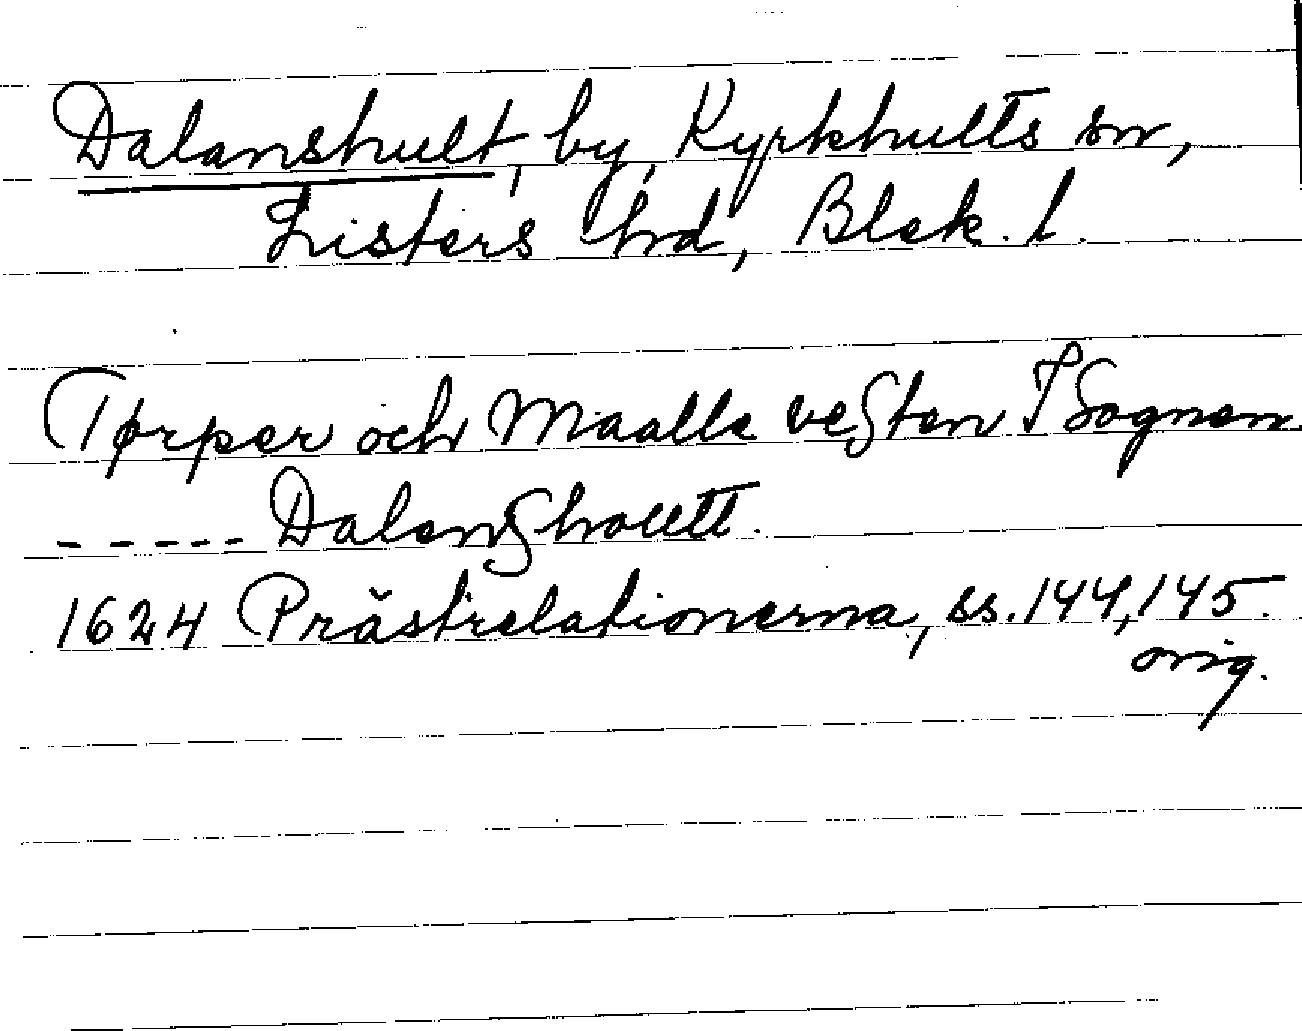 Dalanshult, by, Kyrkhults sn,
Listers hd, Blek. l.
Tørper och Maalle vesten I Sognen
----- Dalenshoultt.
1624 Prästrelationerna, ss. 144, 145.
orig.